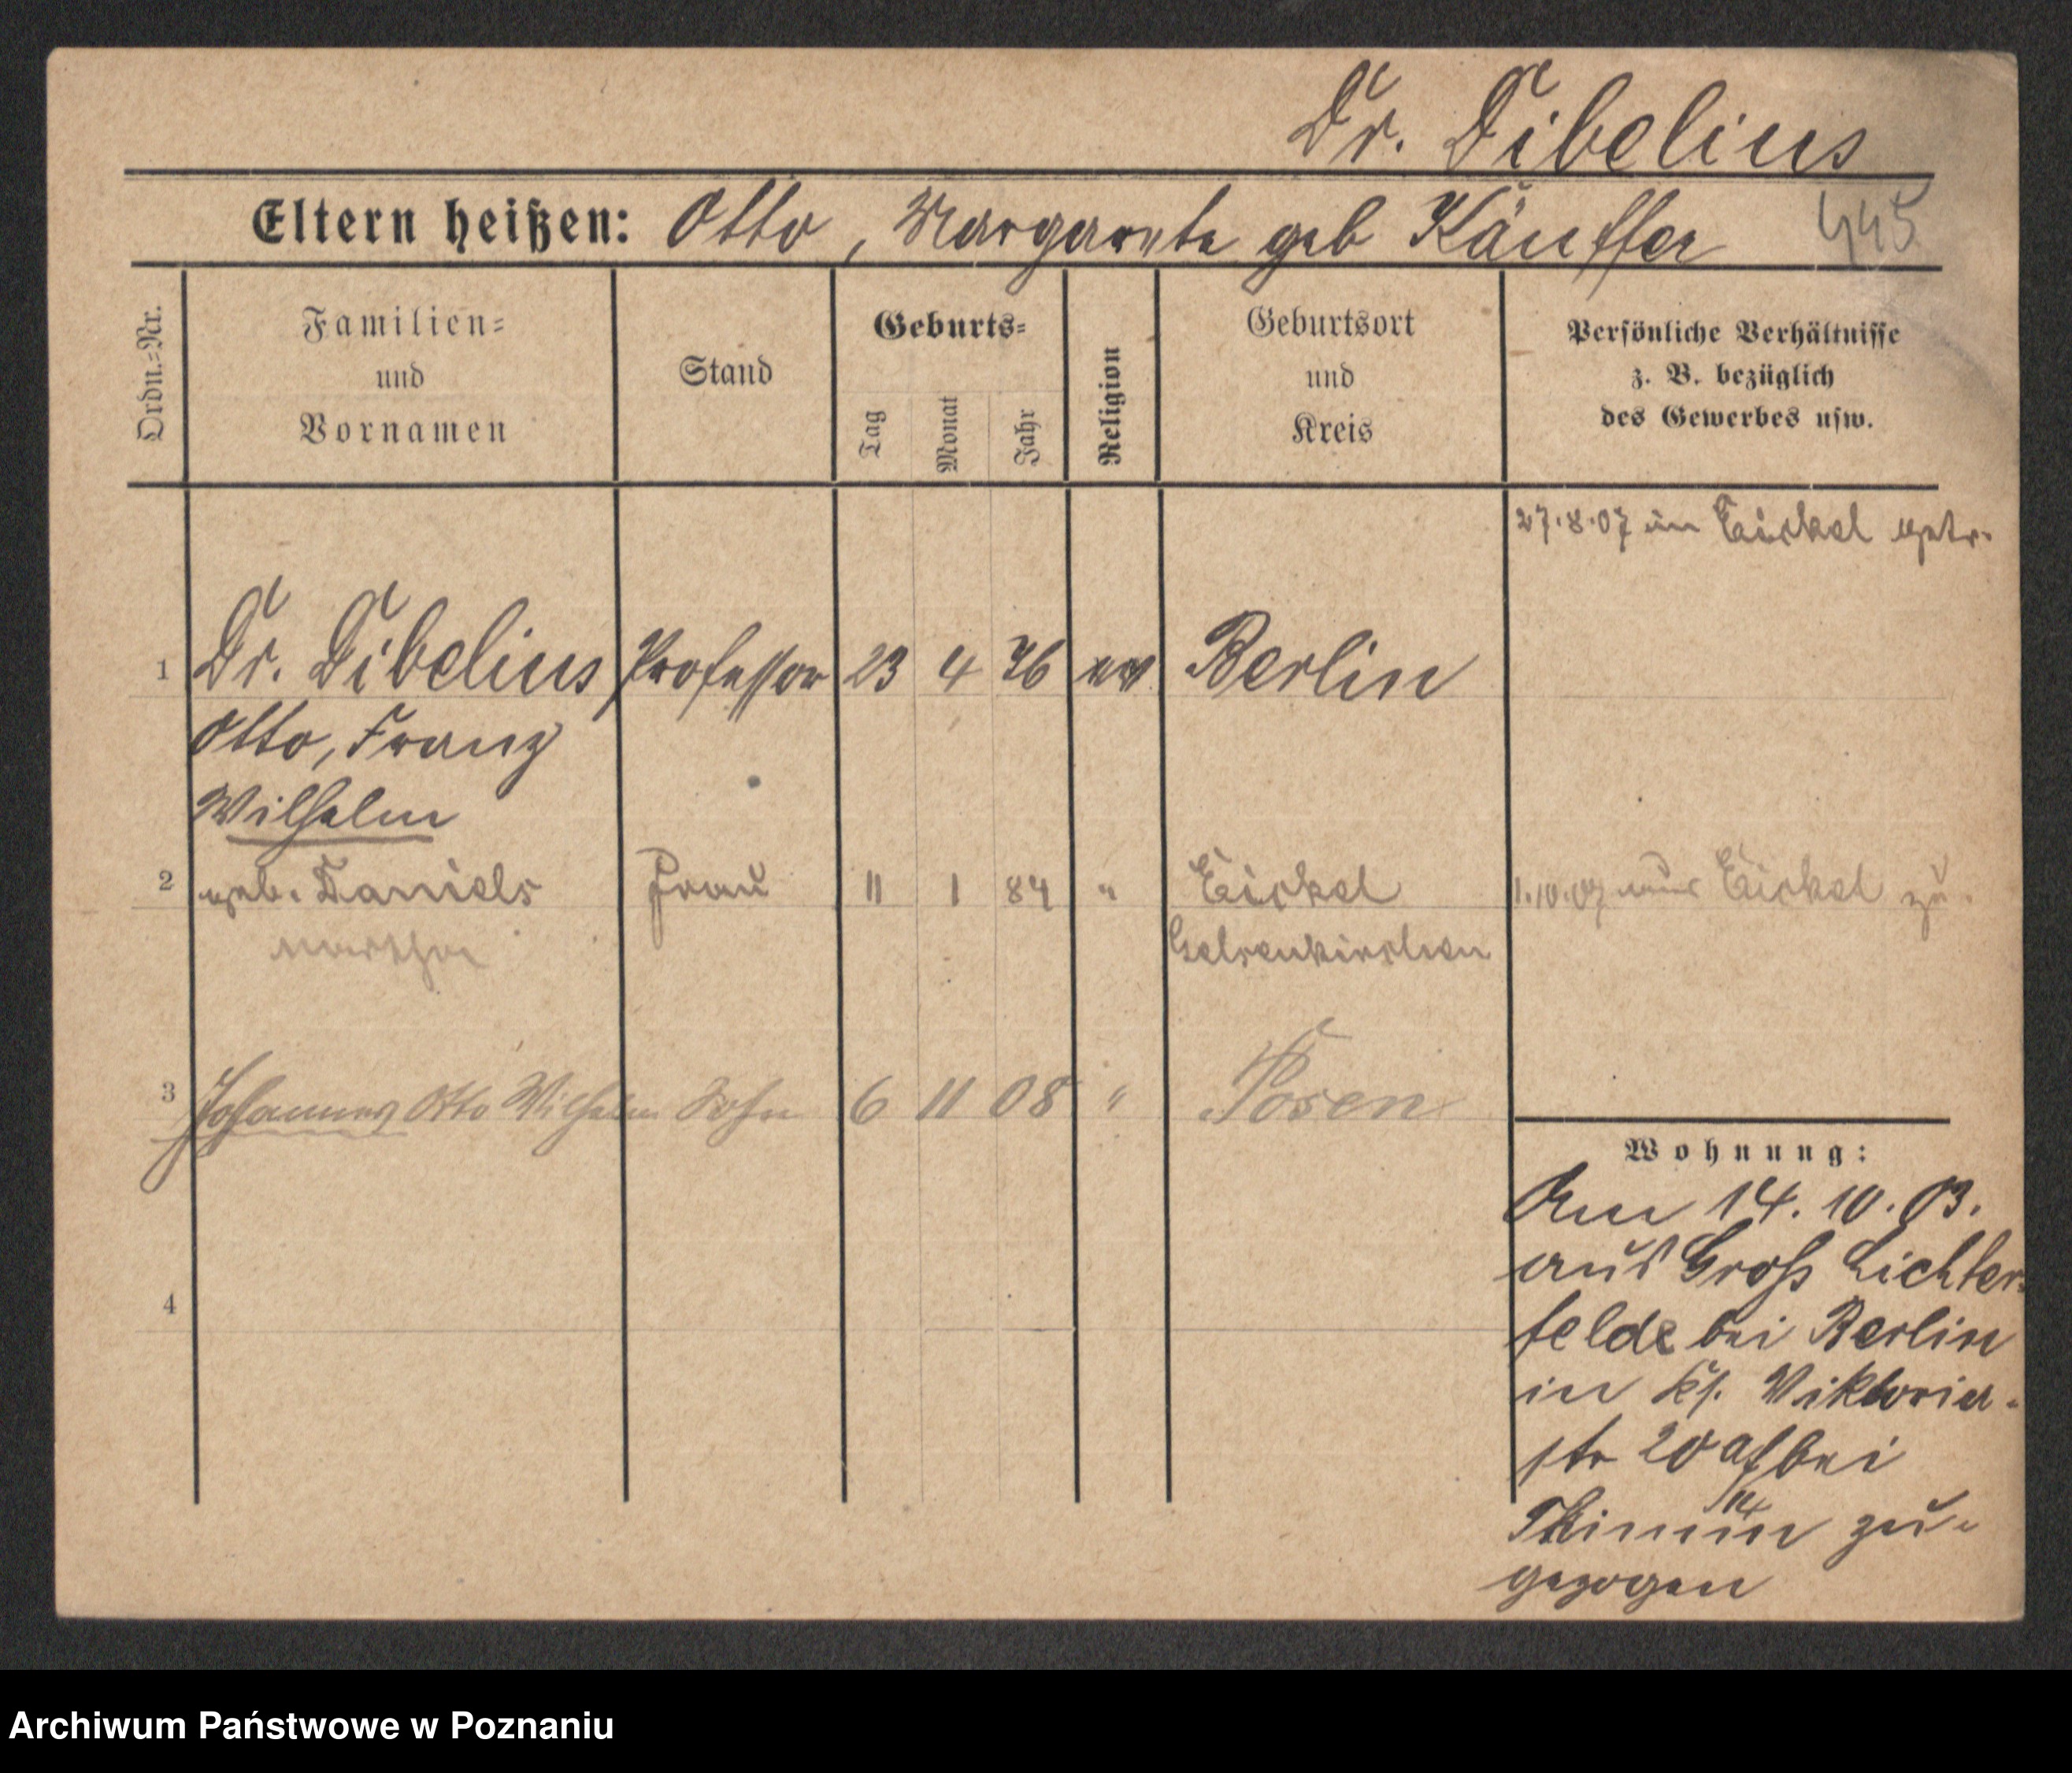 Dr. Dibelius
Eltern heißen: Otto, Margarete geb Käuffer 445
Ordn.=Nr.
Familien=
und
Vornamen
Stand
Geburts=
Tag
Monat
Jahr
Religion
Geburtsort
und
Kreis
Persönliche Verhältnisse
z. B. bezüglich
des Gewerbes usw.
27.8.07 in Eickel getr.
1 Dr. Dibelius Professor 23 4 76 ev Berlin
Otto, Franz
Wilhelm
2 geb. Daniels Frau 11 1 84 " Eickel 1.10.07 aus Eickel zu.
Martha Gelsenkirchen
3 Johannes Otto Wilhelm Sohn 6 11 08 " Posen
4
Wohnung:
Am 14. 10. 03.
aus Gross Lichter-
felde bei Berlin
in Viktoria-
str 20 bei
zu-
gezogen
Archiwum Państwowe w Poznaniu